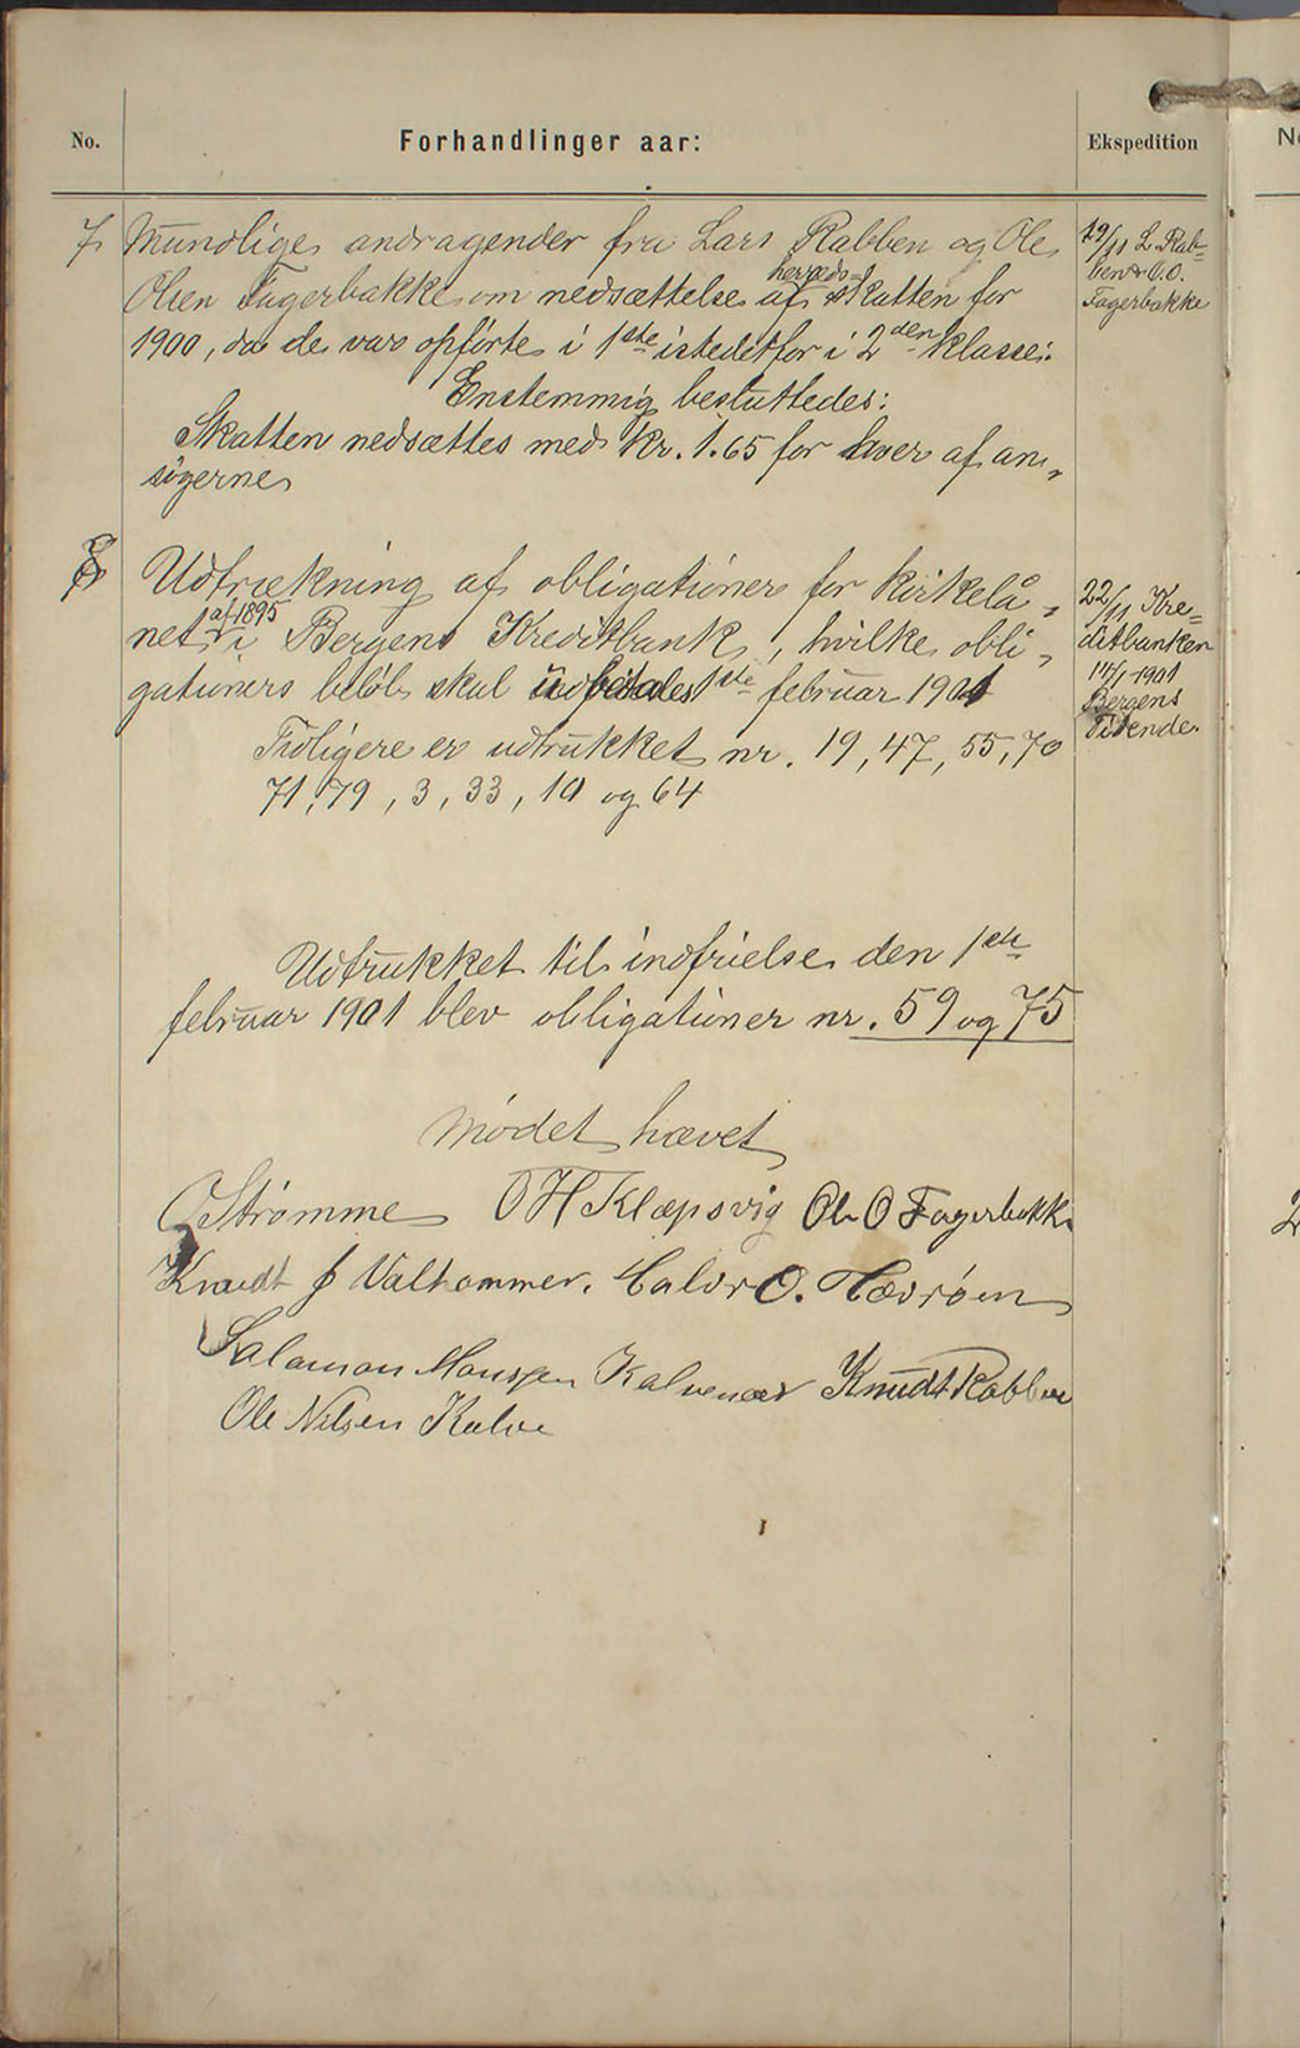 No.
Forhandlinger aar:
Ekspedition
7 Mundlige andragender fra Lars Rabben og Ole
Olsen Fagerbakke om nedsættelse af herreds= skatten for
1900, da de var opførte i 1ste istedetfor i 2den klasse.
Enstemmig besluttedes:
Skatten nedsættes med kr. 1.65 for hver af an-
søgerne
19/11 L. Rab=
ben & O.O.
Fagerbakke
8 Udtrækning af obligationer for kirkelå-
net af 1895 i Bergens Kreditbank, hvilke obli-
gationers beløb skal indbetales 1ste februar 1901
Tidligere er udtrukket nr. 19, 47, 55, 70
71, 79, 3, 33, 10 og 64
22/11 Kre=
ditbanken
14/1-1901
Bergens
Tidende.
Udtrukket til indfrielse den 1ste
februar 1901 blev obligationer nr. 59 og 75
Mødet hævet
O Strømme O H Klæpsvig Ole O Fagerbakke
Knudt J Valhammer. Halvr O. Hevrøen
Salamon Monssen Kalvenær Knudt Rabben
Ole Nilsen Kalve